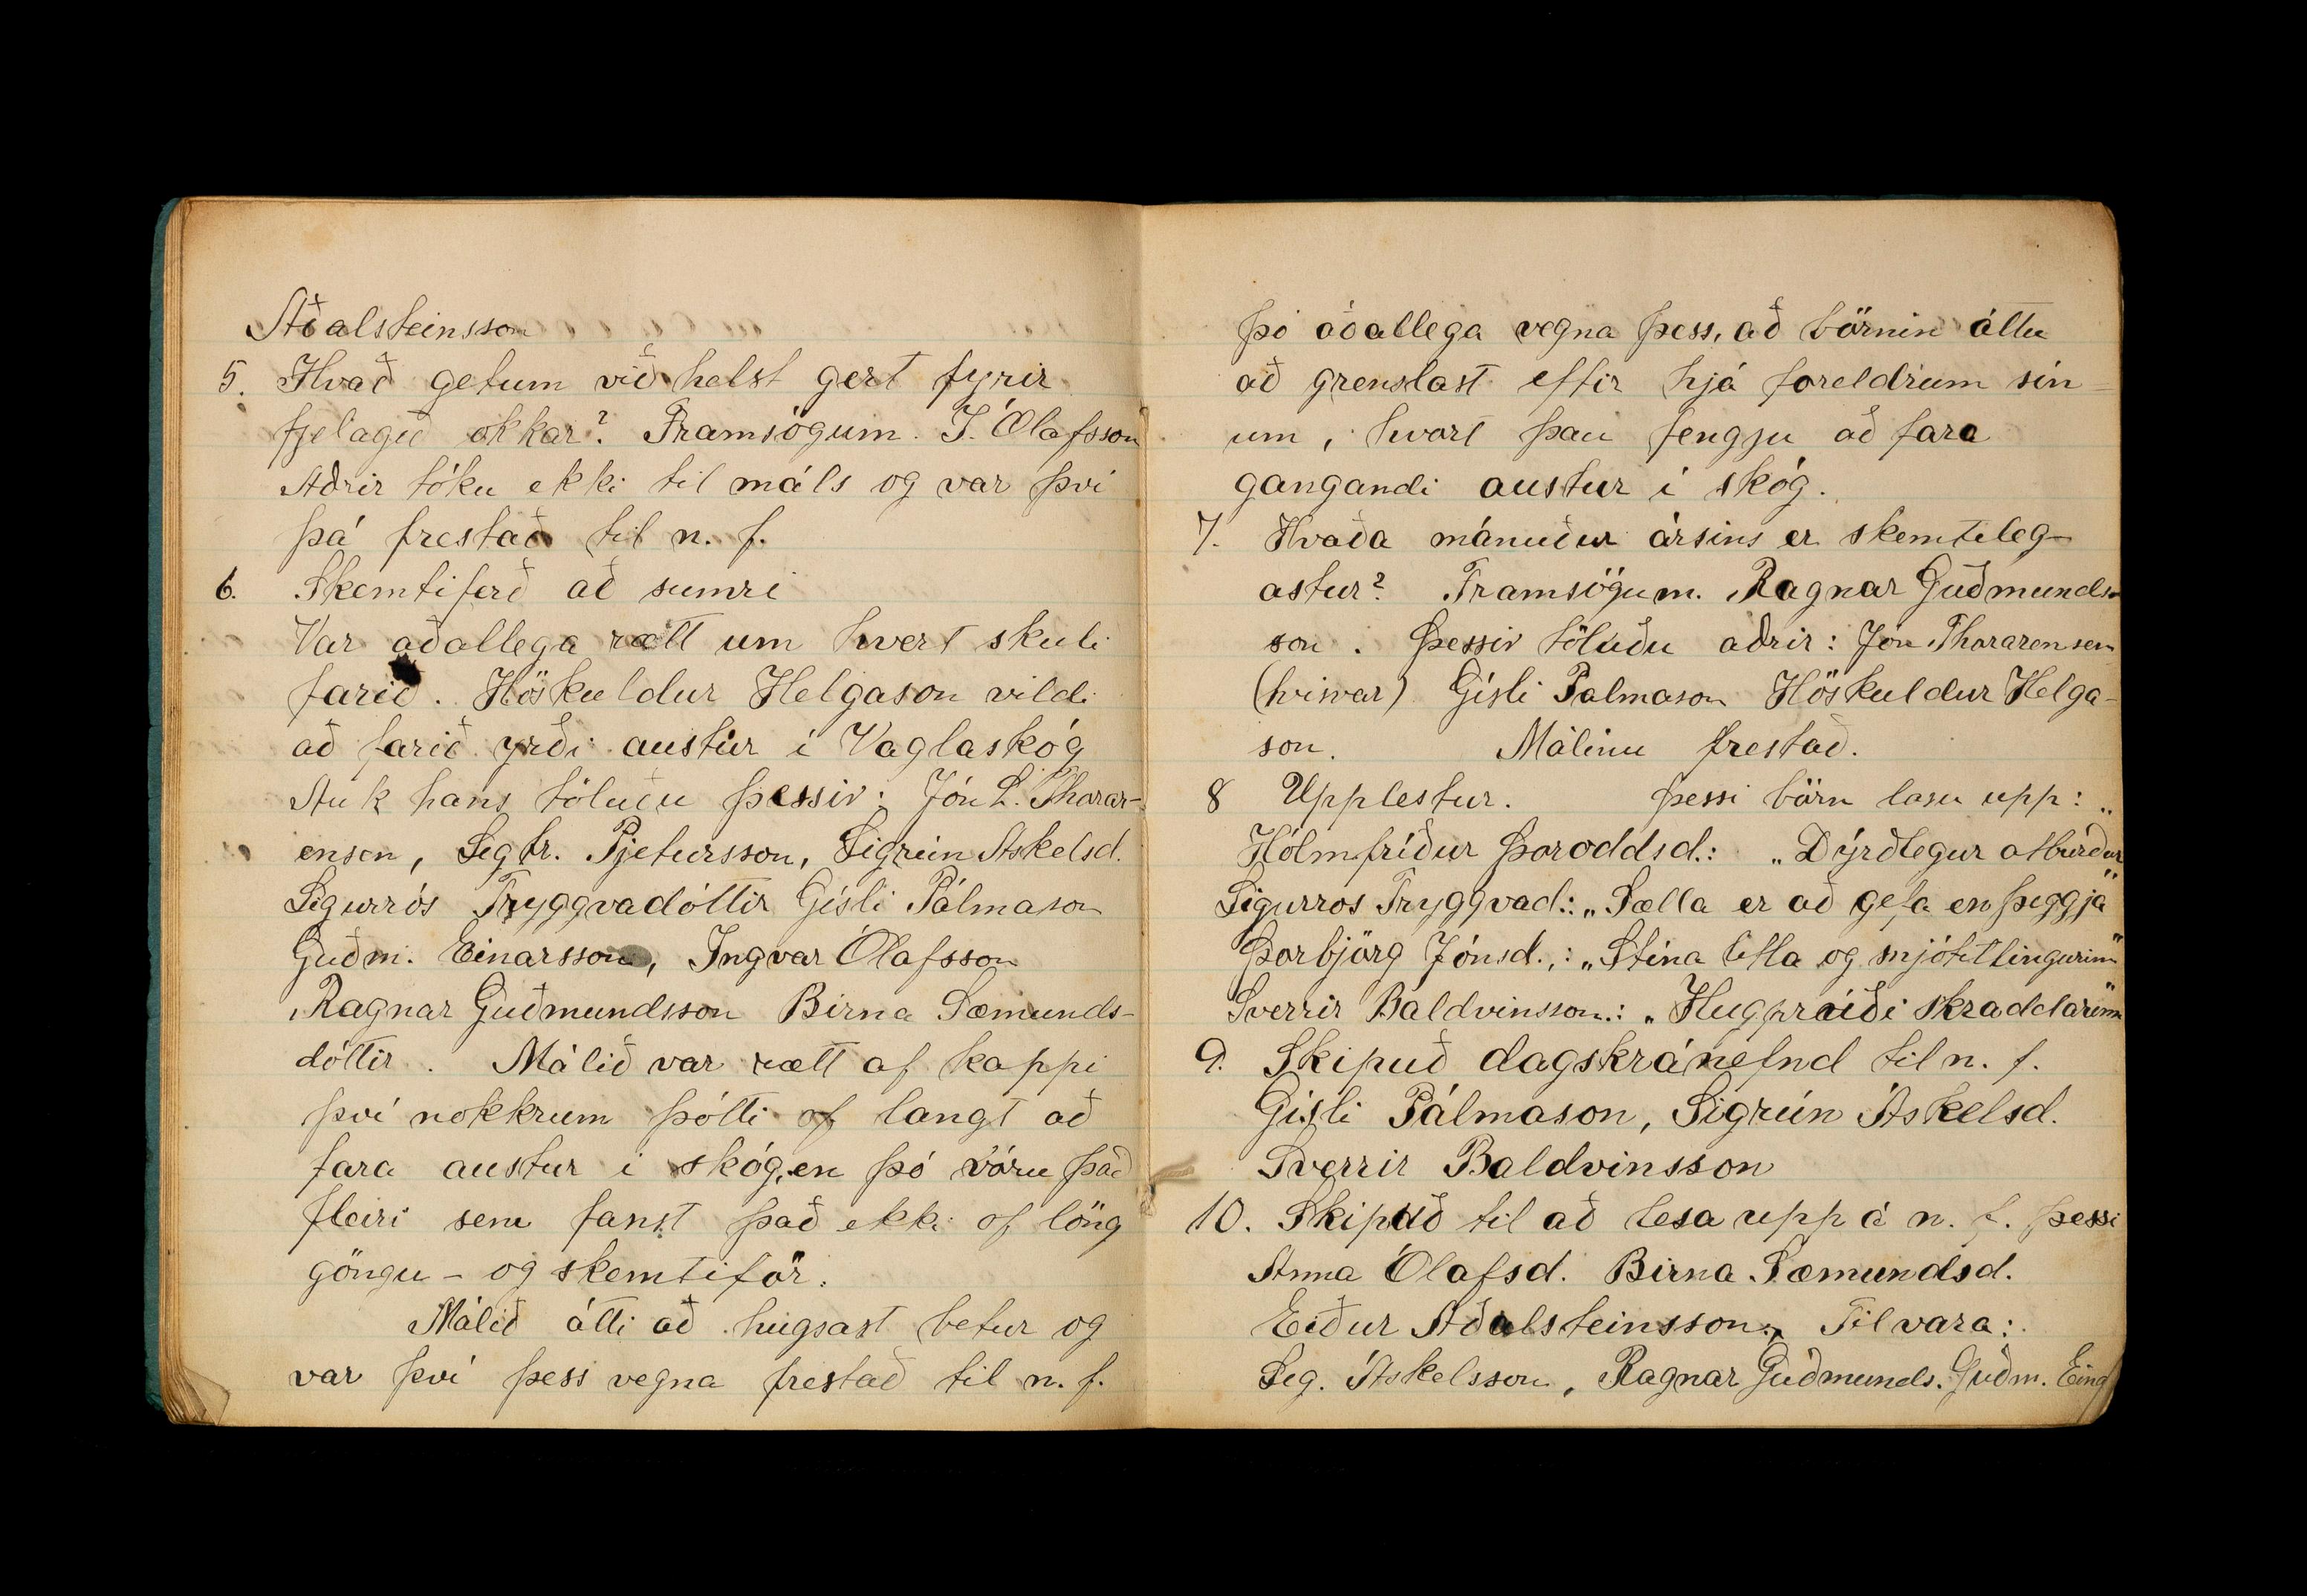 Aðalsteinsson
5. Hvað getum við helst gert fyrir
fjelagið okkar? Framsögum. I. Ólafsson
Aðrir tóku ekki til máls og var því
þá frestað til n. f.
6. Skemtiferð að sumri
Var aðallega rætt um hvert skuli
farið. Höskuldur Helgason vildi
að farið yrði austur í Vaglaskóg
Auk hans töluðu þessir: Jón L. Tharar-
ensen, Sigtr. Pjetursson, Sigrún Áskelsd.
Sigurrós Tryggvadóttir Gísli Pálmason
Guðm. Einarsson, Ingvar Ólafsson
Ragnar Guðmundsson Birna Sæmunds-
dóttir. Málið var rætt af kappi
því nokkrum þótti of langt að
fara austur í skóg, en þó vóru það
fleiri sem fanst það ekki of löng
göngu - og skemtiför.
Málið átti að hugsast betur og
var því þess vegna frestað til n. f.
þó aðallega vegna þess, að börnin áttu
að grenslast eftir hjá foreldrum sín=
um, hvort þau fengju að fara
gangandi austur í skóg.
7. Hvaða mánuður ársins er skemtileg-
astur? Framsögum. Ragnar Guðmunds-
son. Þessir töluðu aðrir: Jón Thorarensen
(hvisvar) Gísli Palmason Höskuldur Helga-
son. Málinu frestað.
8 Upplestur. Þessi börn lasu upp: „
Hólmfríður Þoroddsd.: „Dýrðlegur atburður"
Sigurros Tryggvad.: „Sælla er að gefa en þiggja"
Þorbjörg Jónsd.,: „Stína litla og snjótitlingurinn"
Sverrir Baldvinsson.: „Hugprúði skraddarinn"
9. Skipuð dagskránefnd til n. f.
Gísli Pálmason, Sigrún Áskelsd.
Sverrir Baldvinsson
10. Skipuð til að lesa upp á n. f. þessi
Anna Ólafsd. Birna Sæmundsd.
Eiður Aðalsteinsson, Til vara:
Sig. Áskelsson, Ragnar Guðmunds. Guðm.